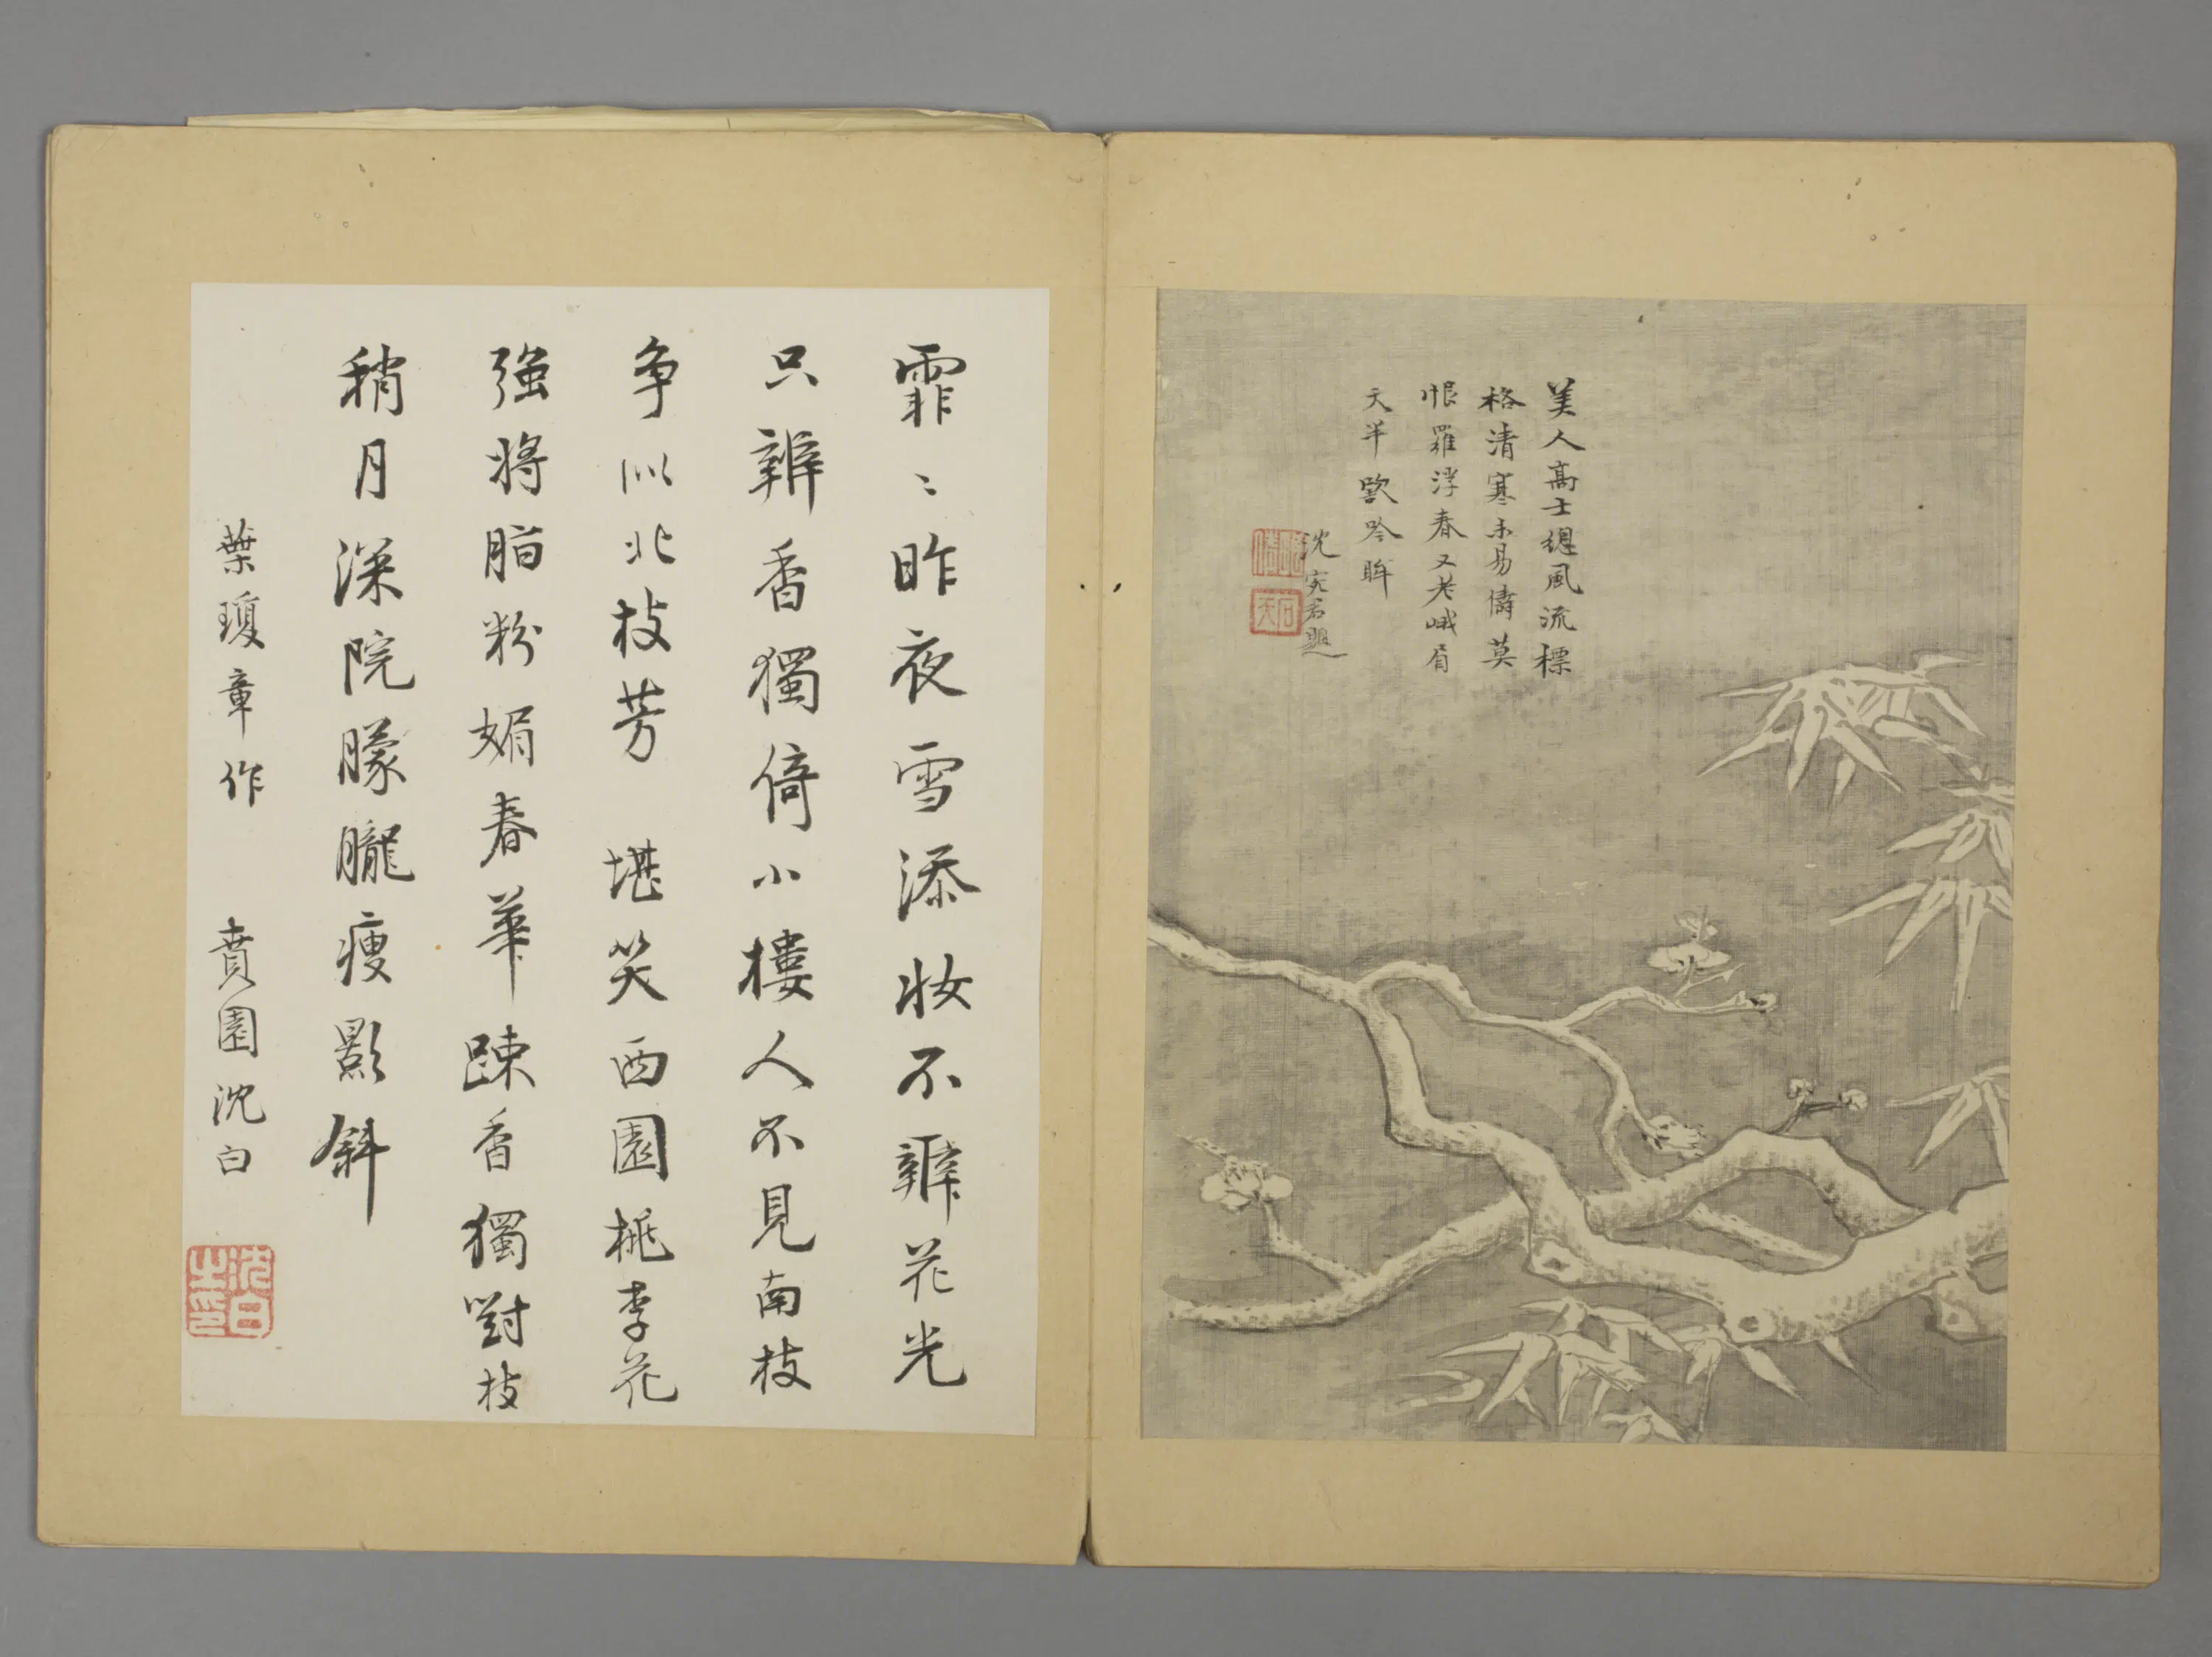 美人高士總風流標
格清寒未易儔莫
恨羅浮春又老峨眉
天半豁吟眸
沈宛君題
霏〻昨夜雪添妝不辨花光
只辨香獨倚小樓人不見南枝
争似北枝芳 堪笑西園桃李花
強將脂粉媚春華踈香獨對枝
稍月深院朦朧瘦影斜
葉瓊章作 賁園沈白
沈白之印